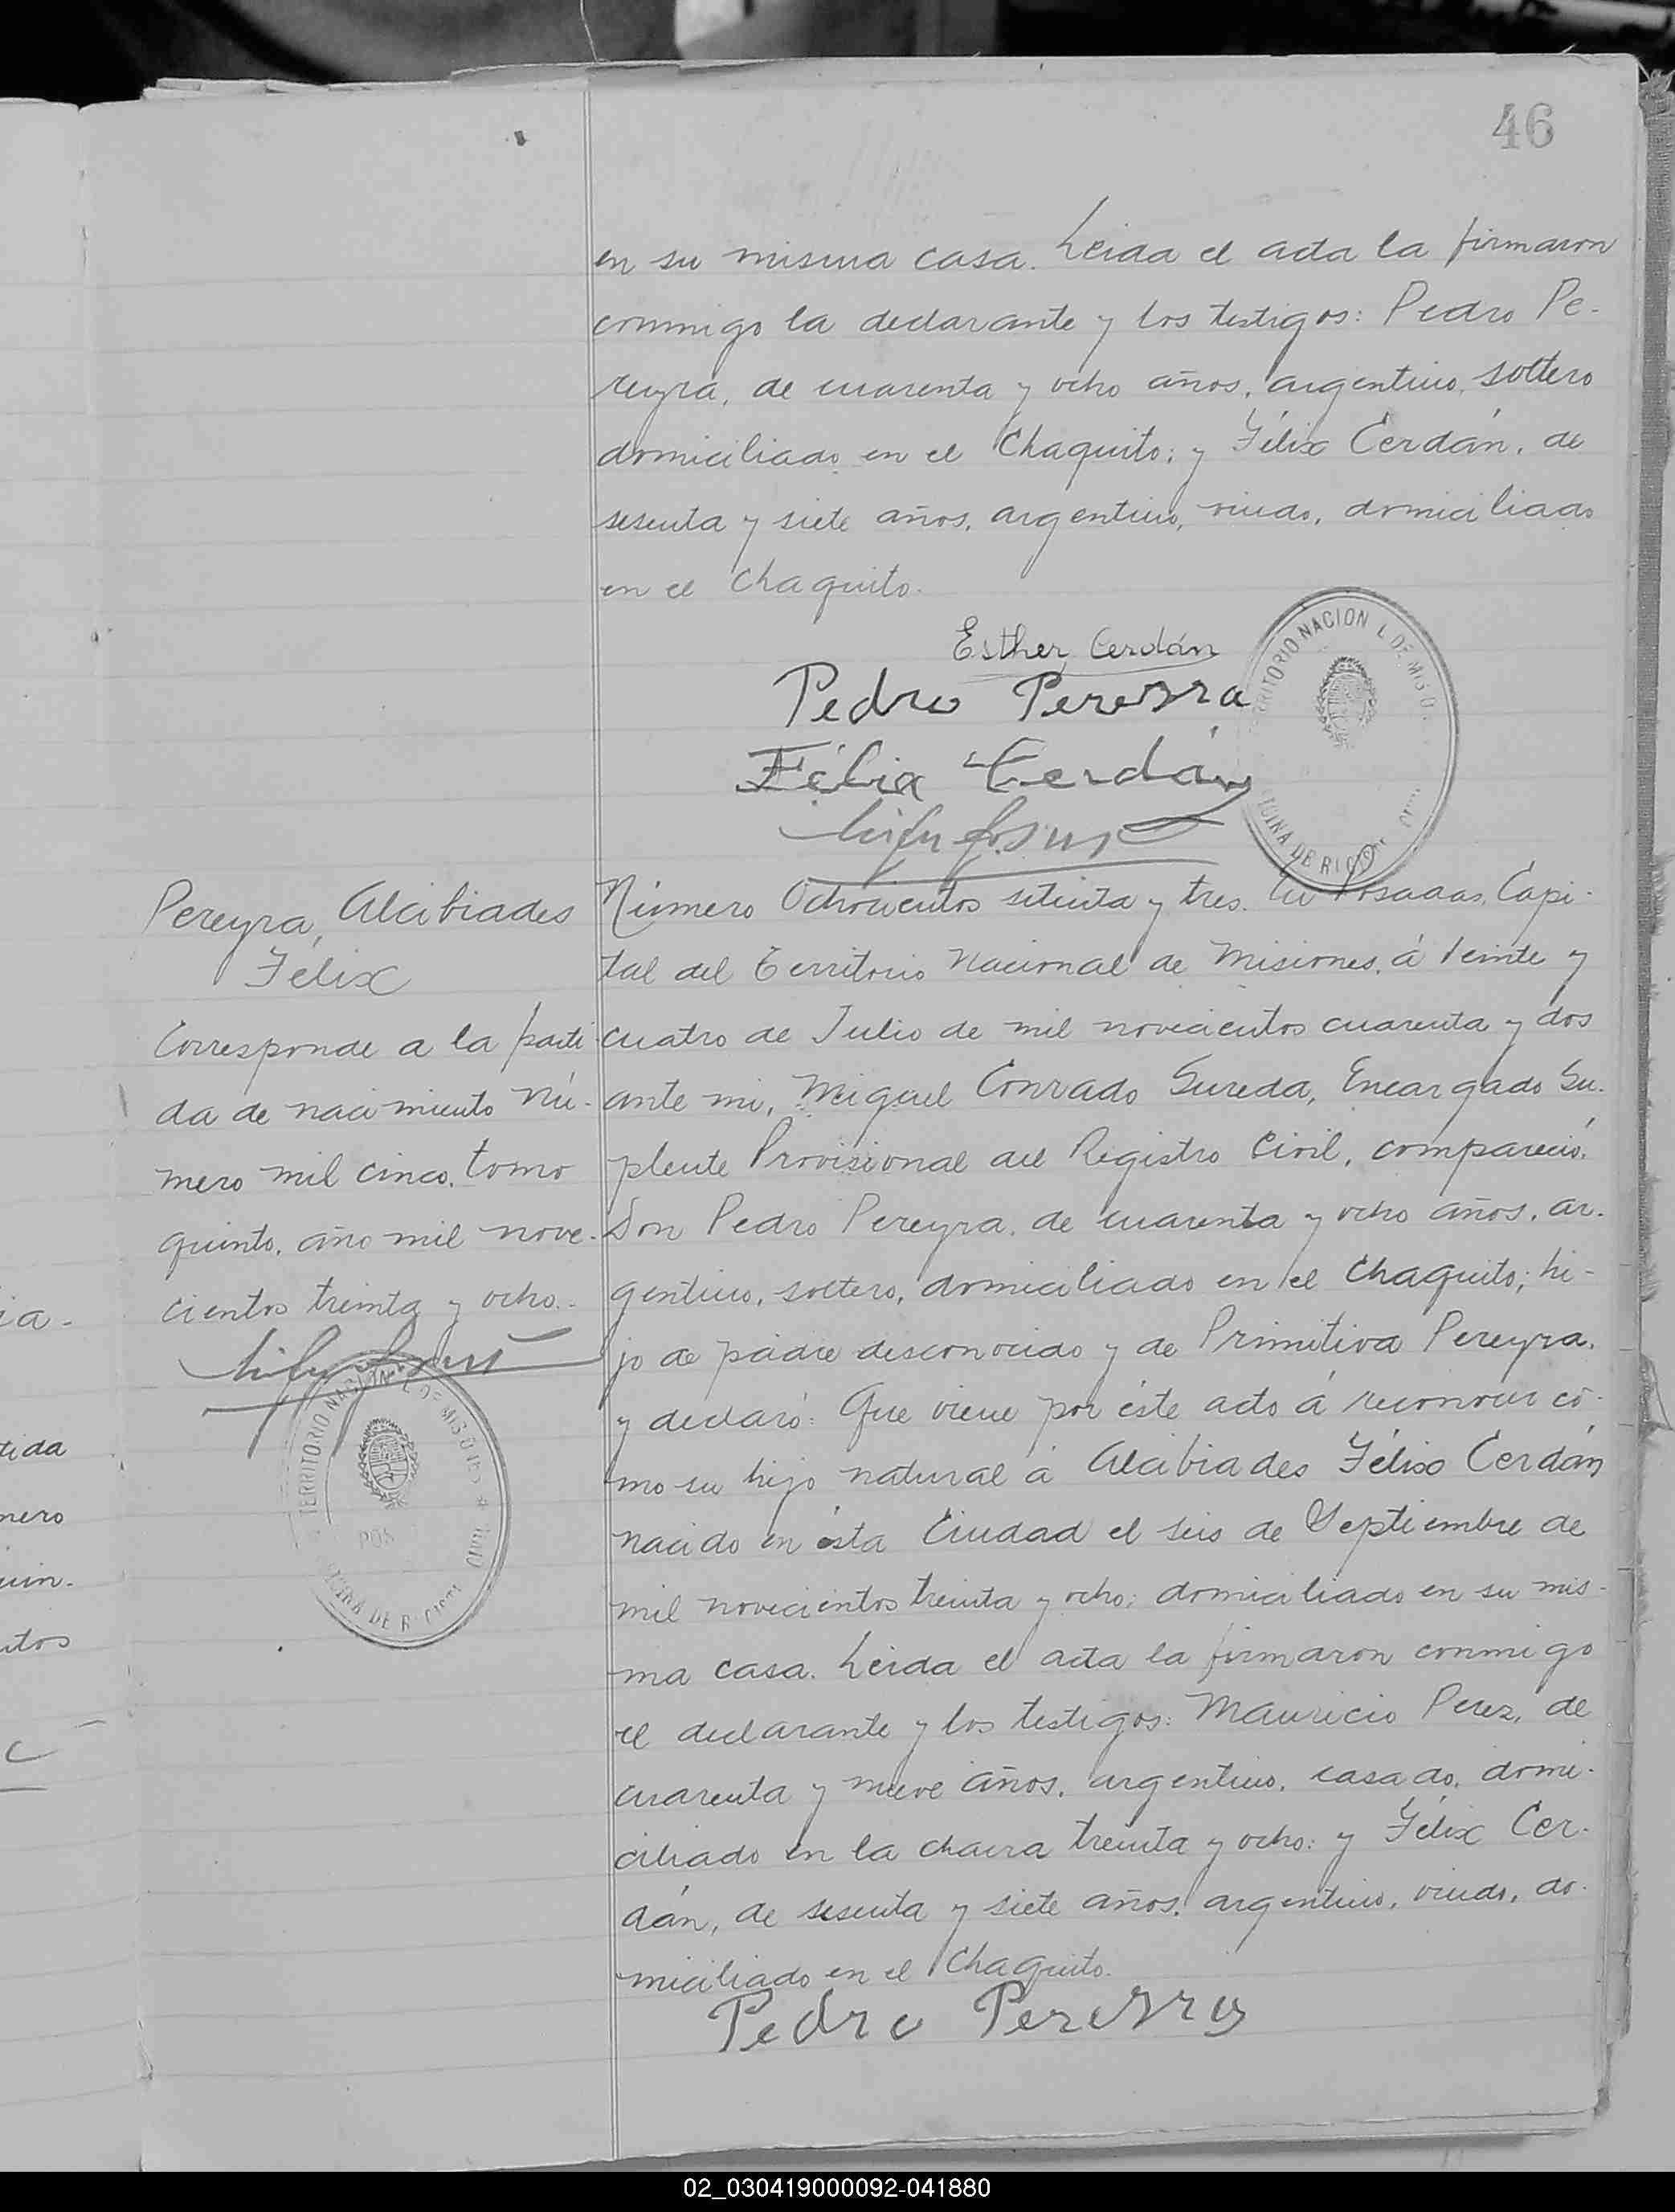 46
en su misma casa. Leida el acta la firmaron
conmigo la declarante y los testigos: Pedro Pe-
reyra, de cuarenta y ocho años, argentino, soltero
domiciliado en el Chaquito; y Félix Cerdán, de
sesenta y siete años, argentino, viudo, domiciliado
en el Chaquito.
Esther Cerdán
Pedro Pereyra
Félix Cerdán
TERRITORIO NACION L DE MISIO
Pereyra, Alcibiades
Félix
Corresponde a la parti
da de nacimiento Nú-
mero mil cinco, tomo
quinto, año mil nove-
cientos treinta y ocho.-
TERRITORIO NACION L DE MISIONES
POS
Número Ochocientos setenta y tres. En Posadas, Capi-
tal del Territorio Nacional de Misiones, á Veinte y
cuatro de Julio de mil novecientos cuarenta y dos
ante mi, Miguel Conrado Sureda, Encargado Su-
plente Provisional del Registro Civil, compareció,
Don Pedro Pereyra, de cuarenta y ocho años, ar-
gentino, soltero, domiciliado en el Chaquito; hi-
jo de padre desconocido y de Primitiva Pereyra,
y declaró: Que viene por éste acto á reconocer có-
mo su hijo natural á Alcibiades Félix Cerdán
nacido en ésta Ciudad el seis de Septiembre de
mil novecientos treinta y ocho; domiciliado en su mis-
ma casa. Leida el acta la firmaron conmigo
el declarante y los testigos: Mauricio Perez, de
cuarenta y nueve años, argentino, casado, domi-
ciliado en la chacra treinta y ocho: y Félix Cer-
dán, de sesenta y siete años, argentino, viudo, do-
miciliado en el Chaquito.
Pedro Pereyra
ia-
tida
mero
uin-
ntos
02_030419000092-041880